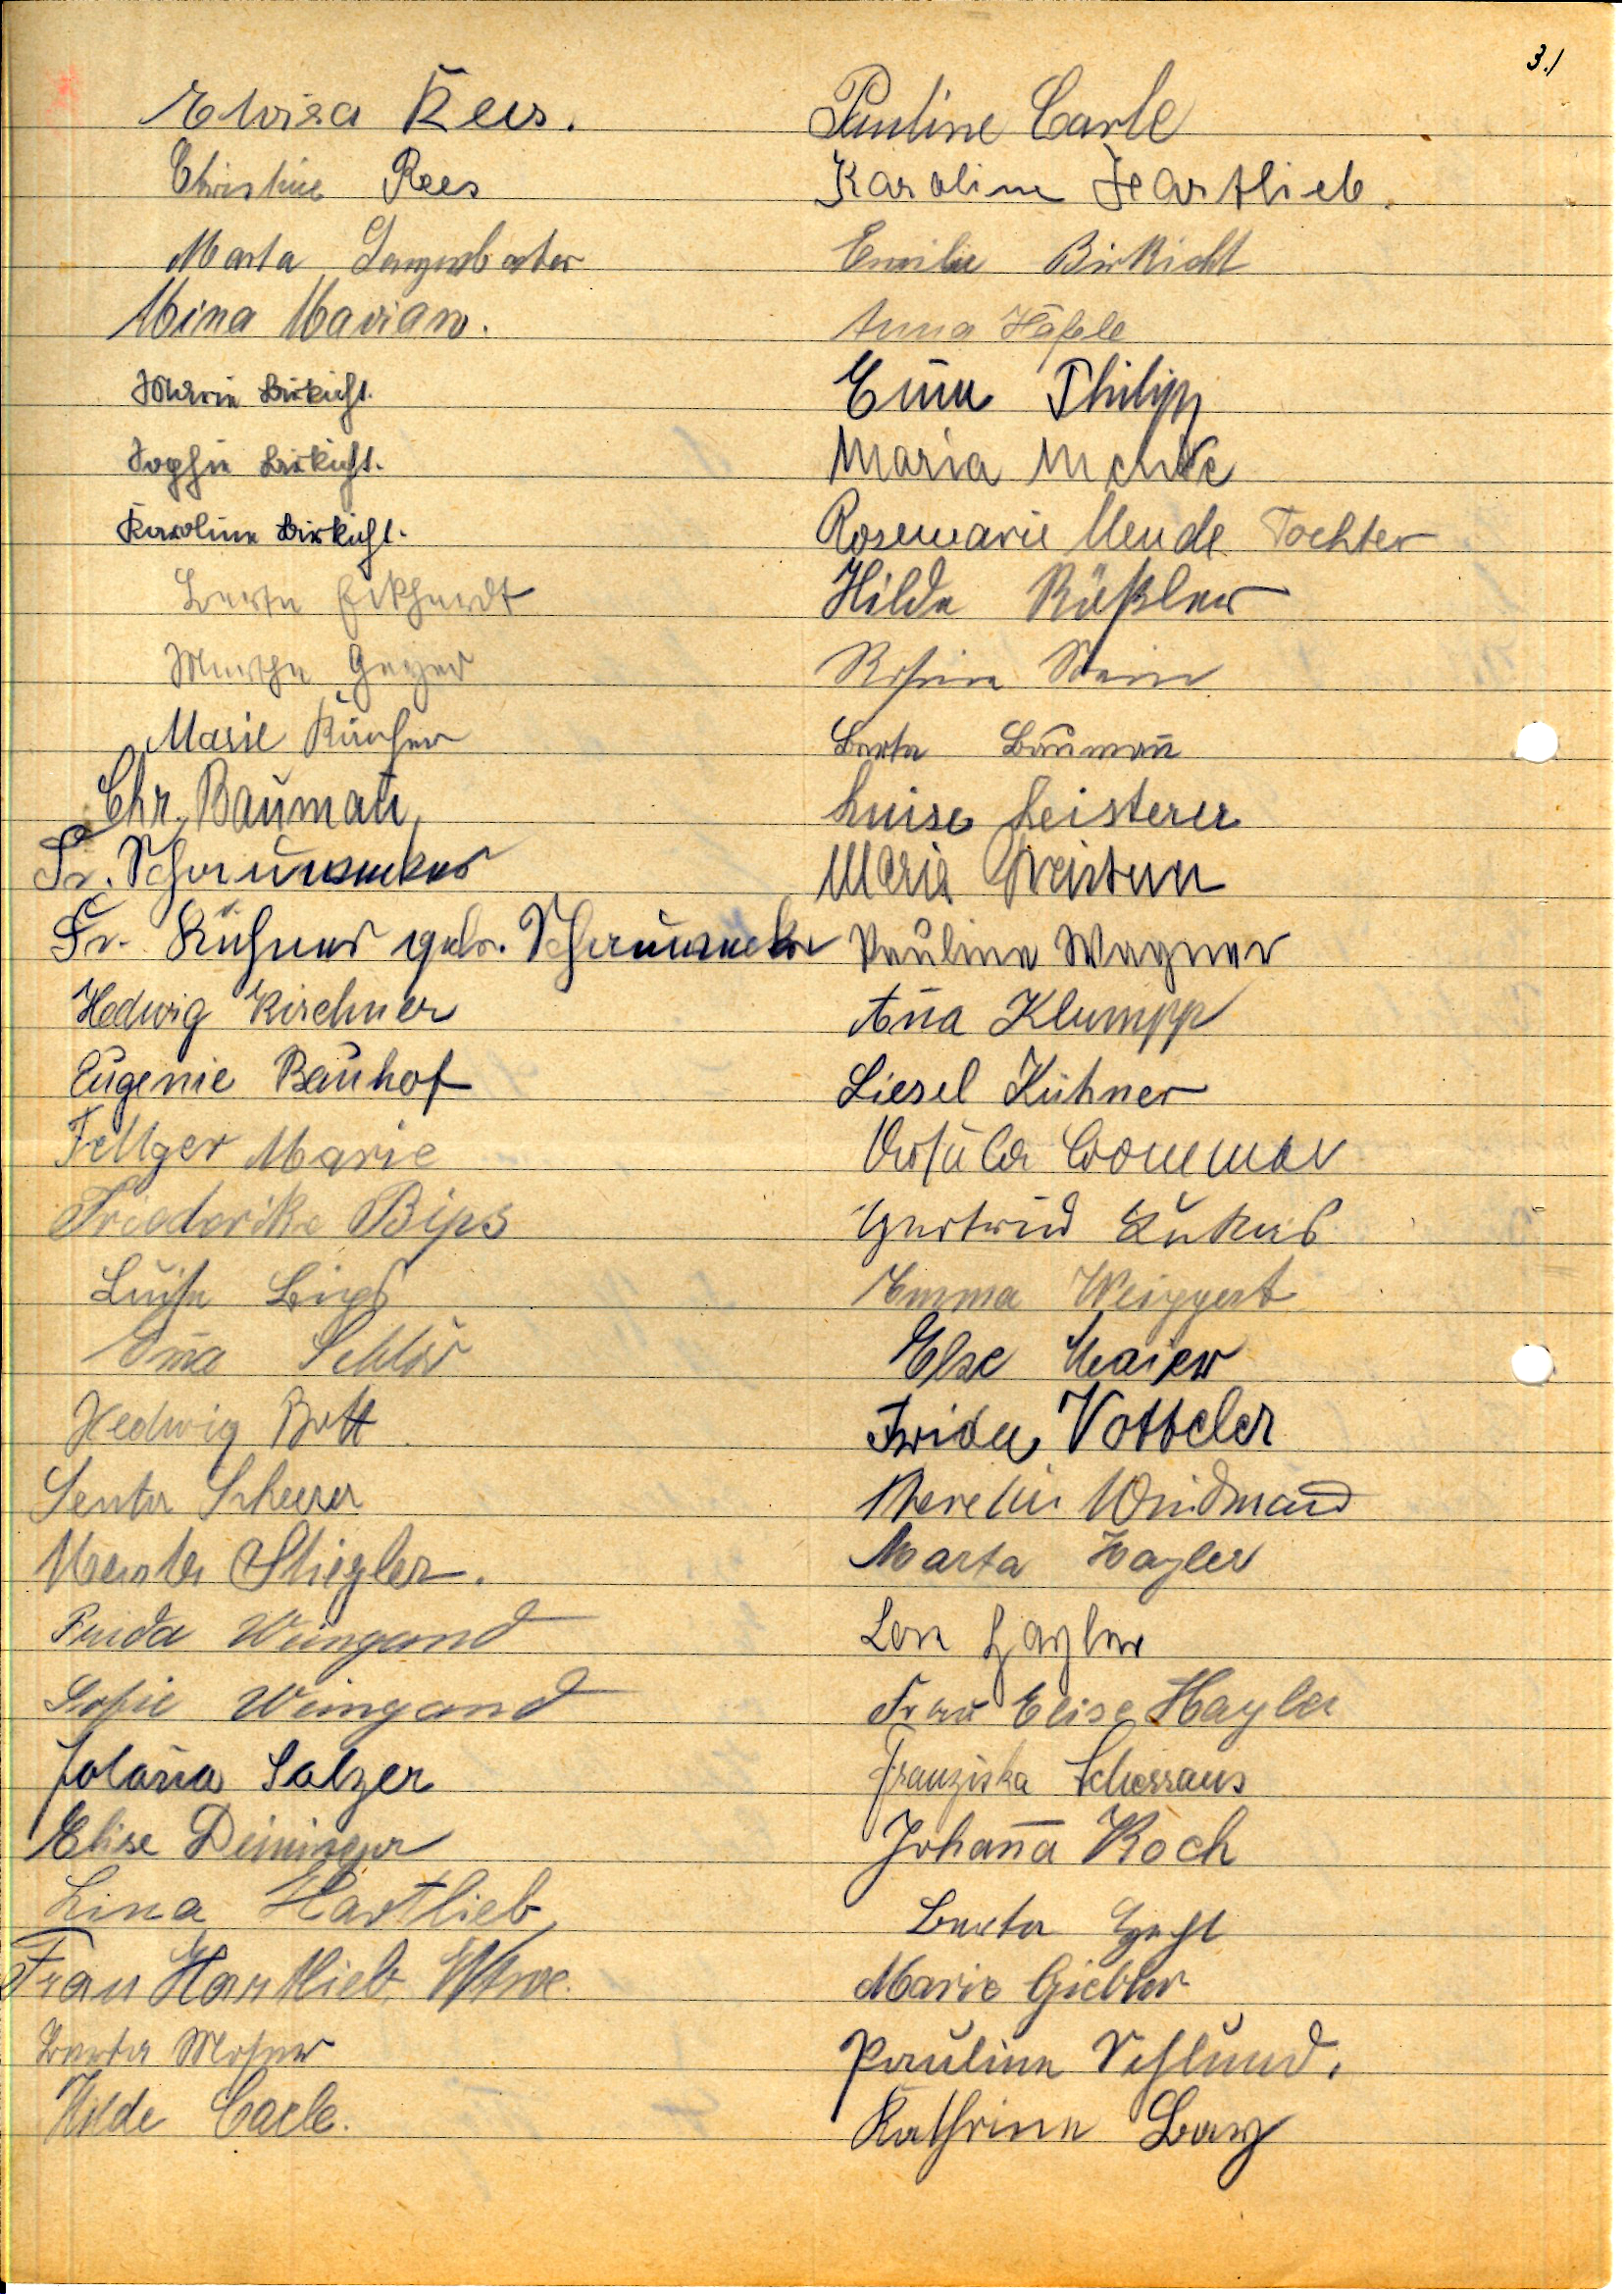 3.)
Elvisa Rees.
Christine Rees
Marta Langenbacher
Mina Marian.
Maria Birkicht.
Sophie Birkicht.
Karoline Birkicht.
Berta Eckhardt
Martha Geyer
Marie
Chr. Baumañ
Fr. Schaunecker
Fr. Kühner geb. Schaunecker
Hedwig Kirchner
Eugenie Bauhof
Fellger Marie
Friederike Bips
Luise Bips
Schlör
Hedwig Bott
Senta Scheerer
Stiegler.
Frida Weingand
Sofie Weingand
Jolaña Salzer
Elise Deininger
Lina Hartlieb
Frau Hartlieb Wtwe.
Berta Moser
Hilde Carle.
Pauline Carle
Karoline Hartlieb.
Emilie Birkicht
Anna Häfele
Philipp
Maria Mende
Rosemarie Mende Tochter
Hilda Rößler
Rosine Stein
Berta Baumañ
Luise Leisterer
Maria
Pauline Wagner
Aña Klumpp
Liesel Kühner
Ursula Crommer
Gertrud Lukas
Emma Weippert
Else Maier
Frida Votteler
Windmañ
Marta Hayler
Hayler
Frau Elise Hayler
Franziska Scherraus
Johaña Koch
Berta
Marie Giebler
Pauline Schlund.
Kathrine Bay